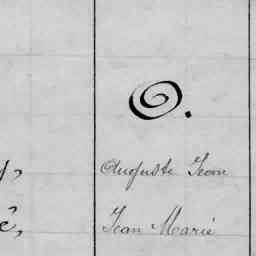 O.
y, Auguste Jean
é, Jean Marie